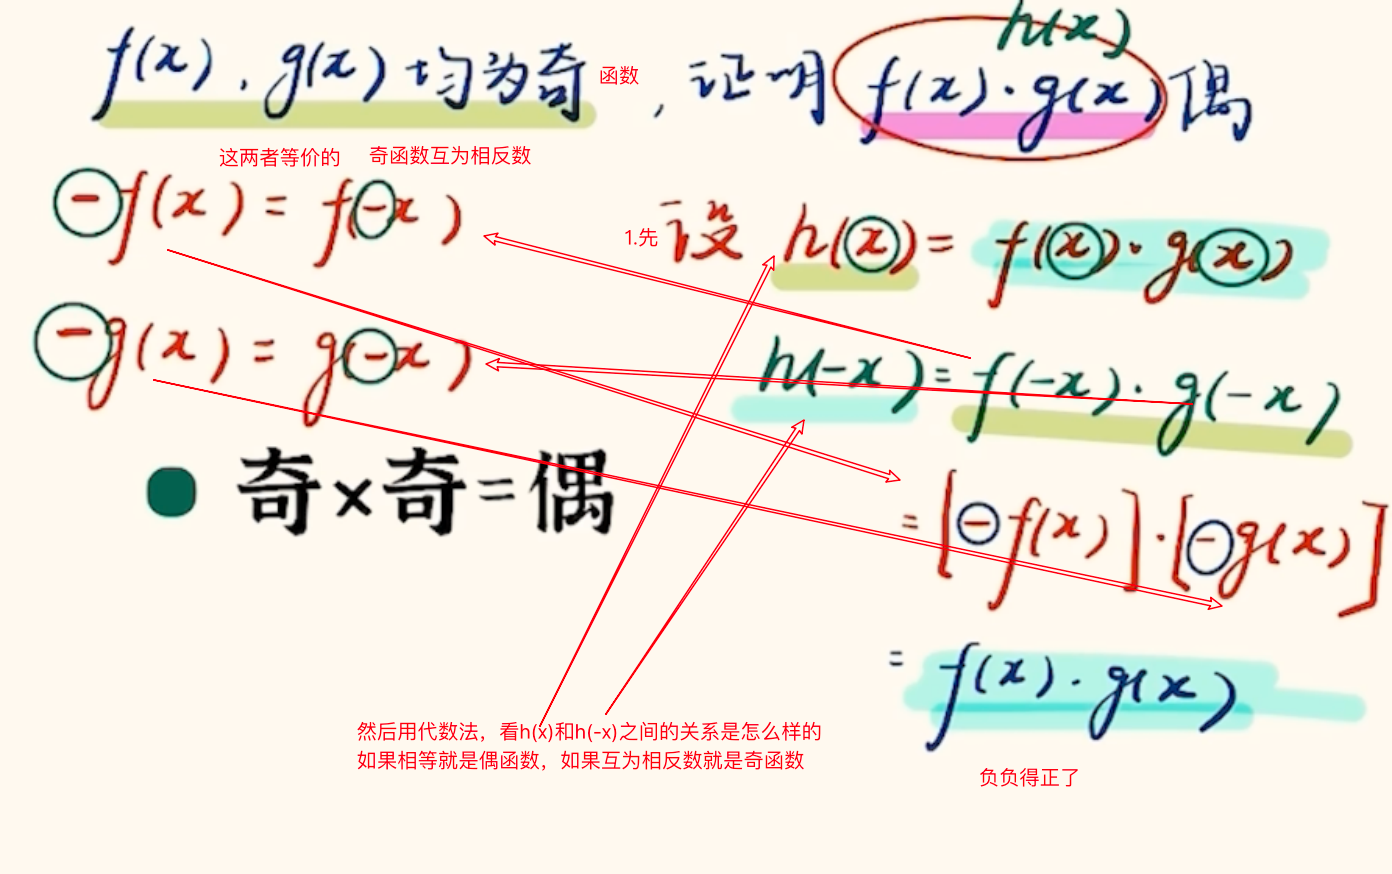 h(x)
f(x), g(x)均为奇函数, 证明 f(x)·g(x)偶
这两者等价的 奇函数互为相反数
-f(x) = f(-x)
1.先设 h(x) = f(x)·g(x)
-g(x) = g(-x)
h(-x) = f(-x)·g(-x)
奇×奇=偶
= [-f(x)]·[-g(x)]
= f(x)·g(x)
然后用代数法，看h(x)和h(-x)之间的关系是怎么样的
如果相等就是偶函数，如果互为相反数就是奇函数
负负得正了